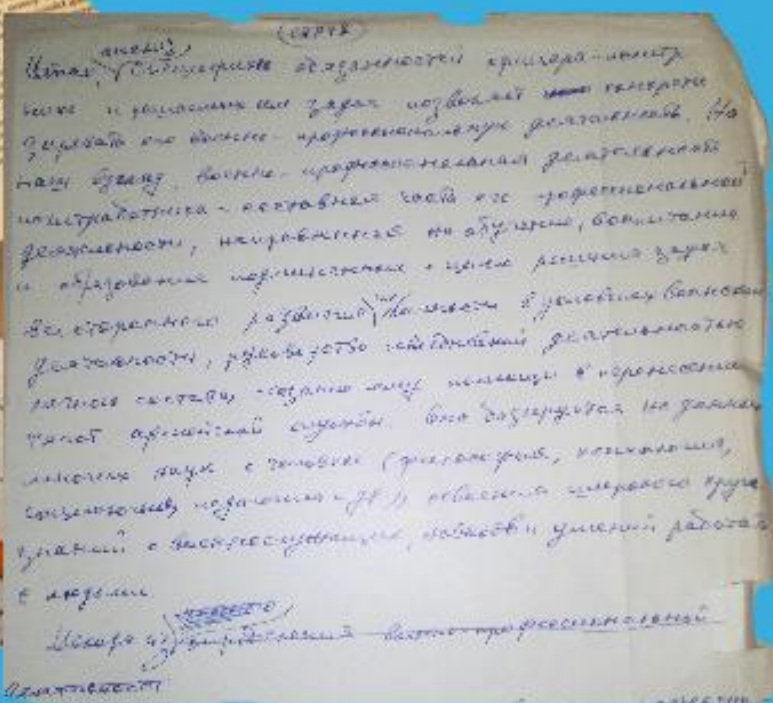 анализ
Итак, специфика обязанностей офицера-
и решаемых им задач позволяет конкрети
зировать его военно-профессиональную деятельность. На
наш взгляд, военно-профессиональная деятельность
- составная часть его профессиональной
деятельности, направленная на обучение, воспитание
и образование подчиненных с целью решения задач
всестороннего развития личности в условиях воинской
деятельности, руководство служебной деятельностью
личного состава, оказание ему помощи в перенесении
тягот армейской службы. Она базируется на данных
многих наук о человеке (философия, психология,
социология, педагогика и др.), освоения широкого круга
знаний о военнослужащих, навыков и умений работать
с людьми.
Исходя из военно-профессиональной
деятельности